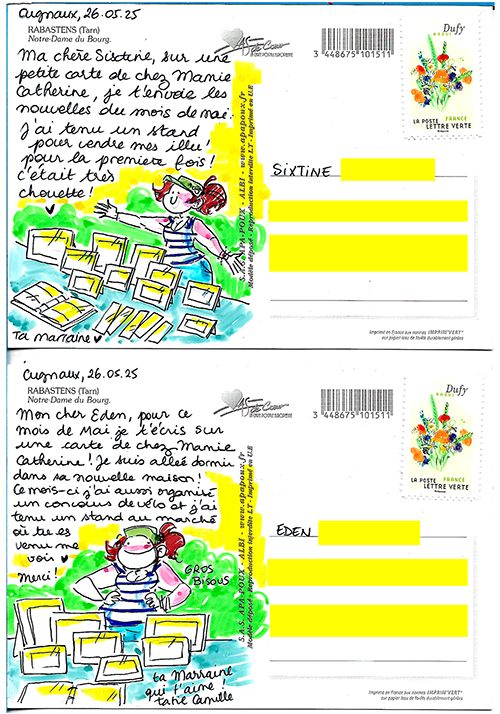 Cugnaux, 26.05.25
RABASTENS (Tarn)
Notre-Dame du Bourg.
Ma chère Sixtine, sur une
petite carte de chez Mamie
Catherine, je t'envoie les
nouvelles du mois de mai.
J'ai tenu un stand
pour vendre mes illu!
pour la première fois!
c'était très
chouette!
Ta marraine
S.A.S. APA-POUX - ALBI - www.apapoux.fr
Modèle déposé - Reproduction interdite LT - Imprimé en U.E
3 448675 101511
Dufy
LA POSTE FRANCE
LETTRE VERTE
SIXTINE
Imprimé en France aux normes IMPRIM'VERT®
sur papier issu de forêts durablement gérées
Cugnaux, 26.05.25
RABASTENS (Tarn)
Notre-Dame du Bourg.
Mon cher Eden, pour ce
mois de Mai je t'écris sur
une carte de chez Mamie
Catherine! Je suis allée dormir
dans sa nouvelle maison!
Ce mois-ci j'ai aussi organisé
un concours de vélo et j'ai
tenu un stand au marché
où tu es
venu me
voir
Merci!
GROS
BISOUS
ta Marraine
qui t'aime!
tatie Camille
S.A.S. APA-POUX - ALBI - www.apapoux.fr
Modèle déposé - Reproduction interdite LT - Imprimé en U.E
3 448675 101511
Dufy
LA POSTE FRANCE
LETTRE VERTE
EDEN
Imprimé en France aux normes IMPRIM'VERT®
sur papier issu de forêts durablement gérées